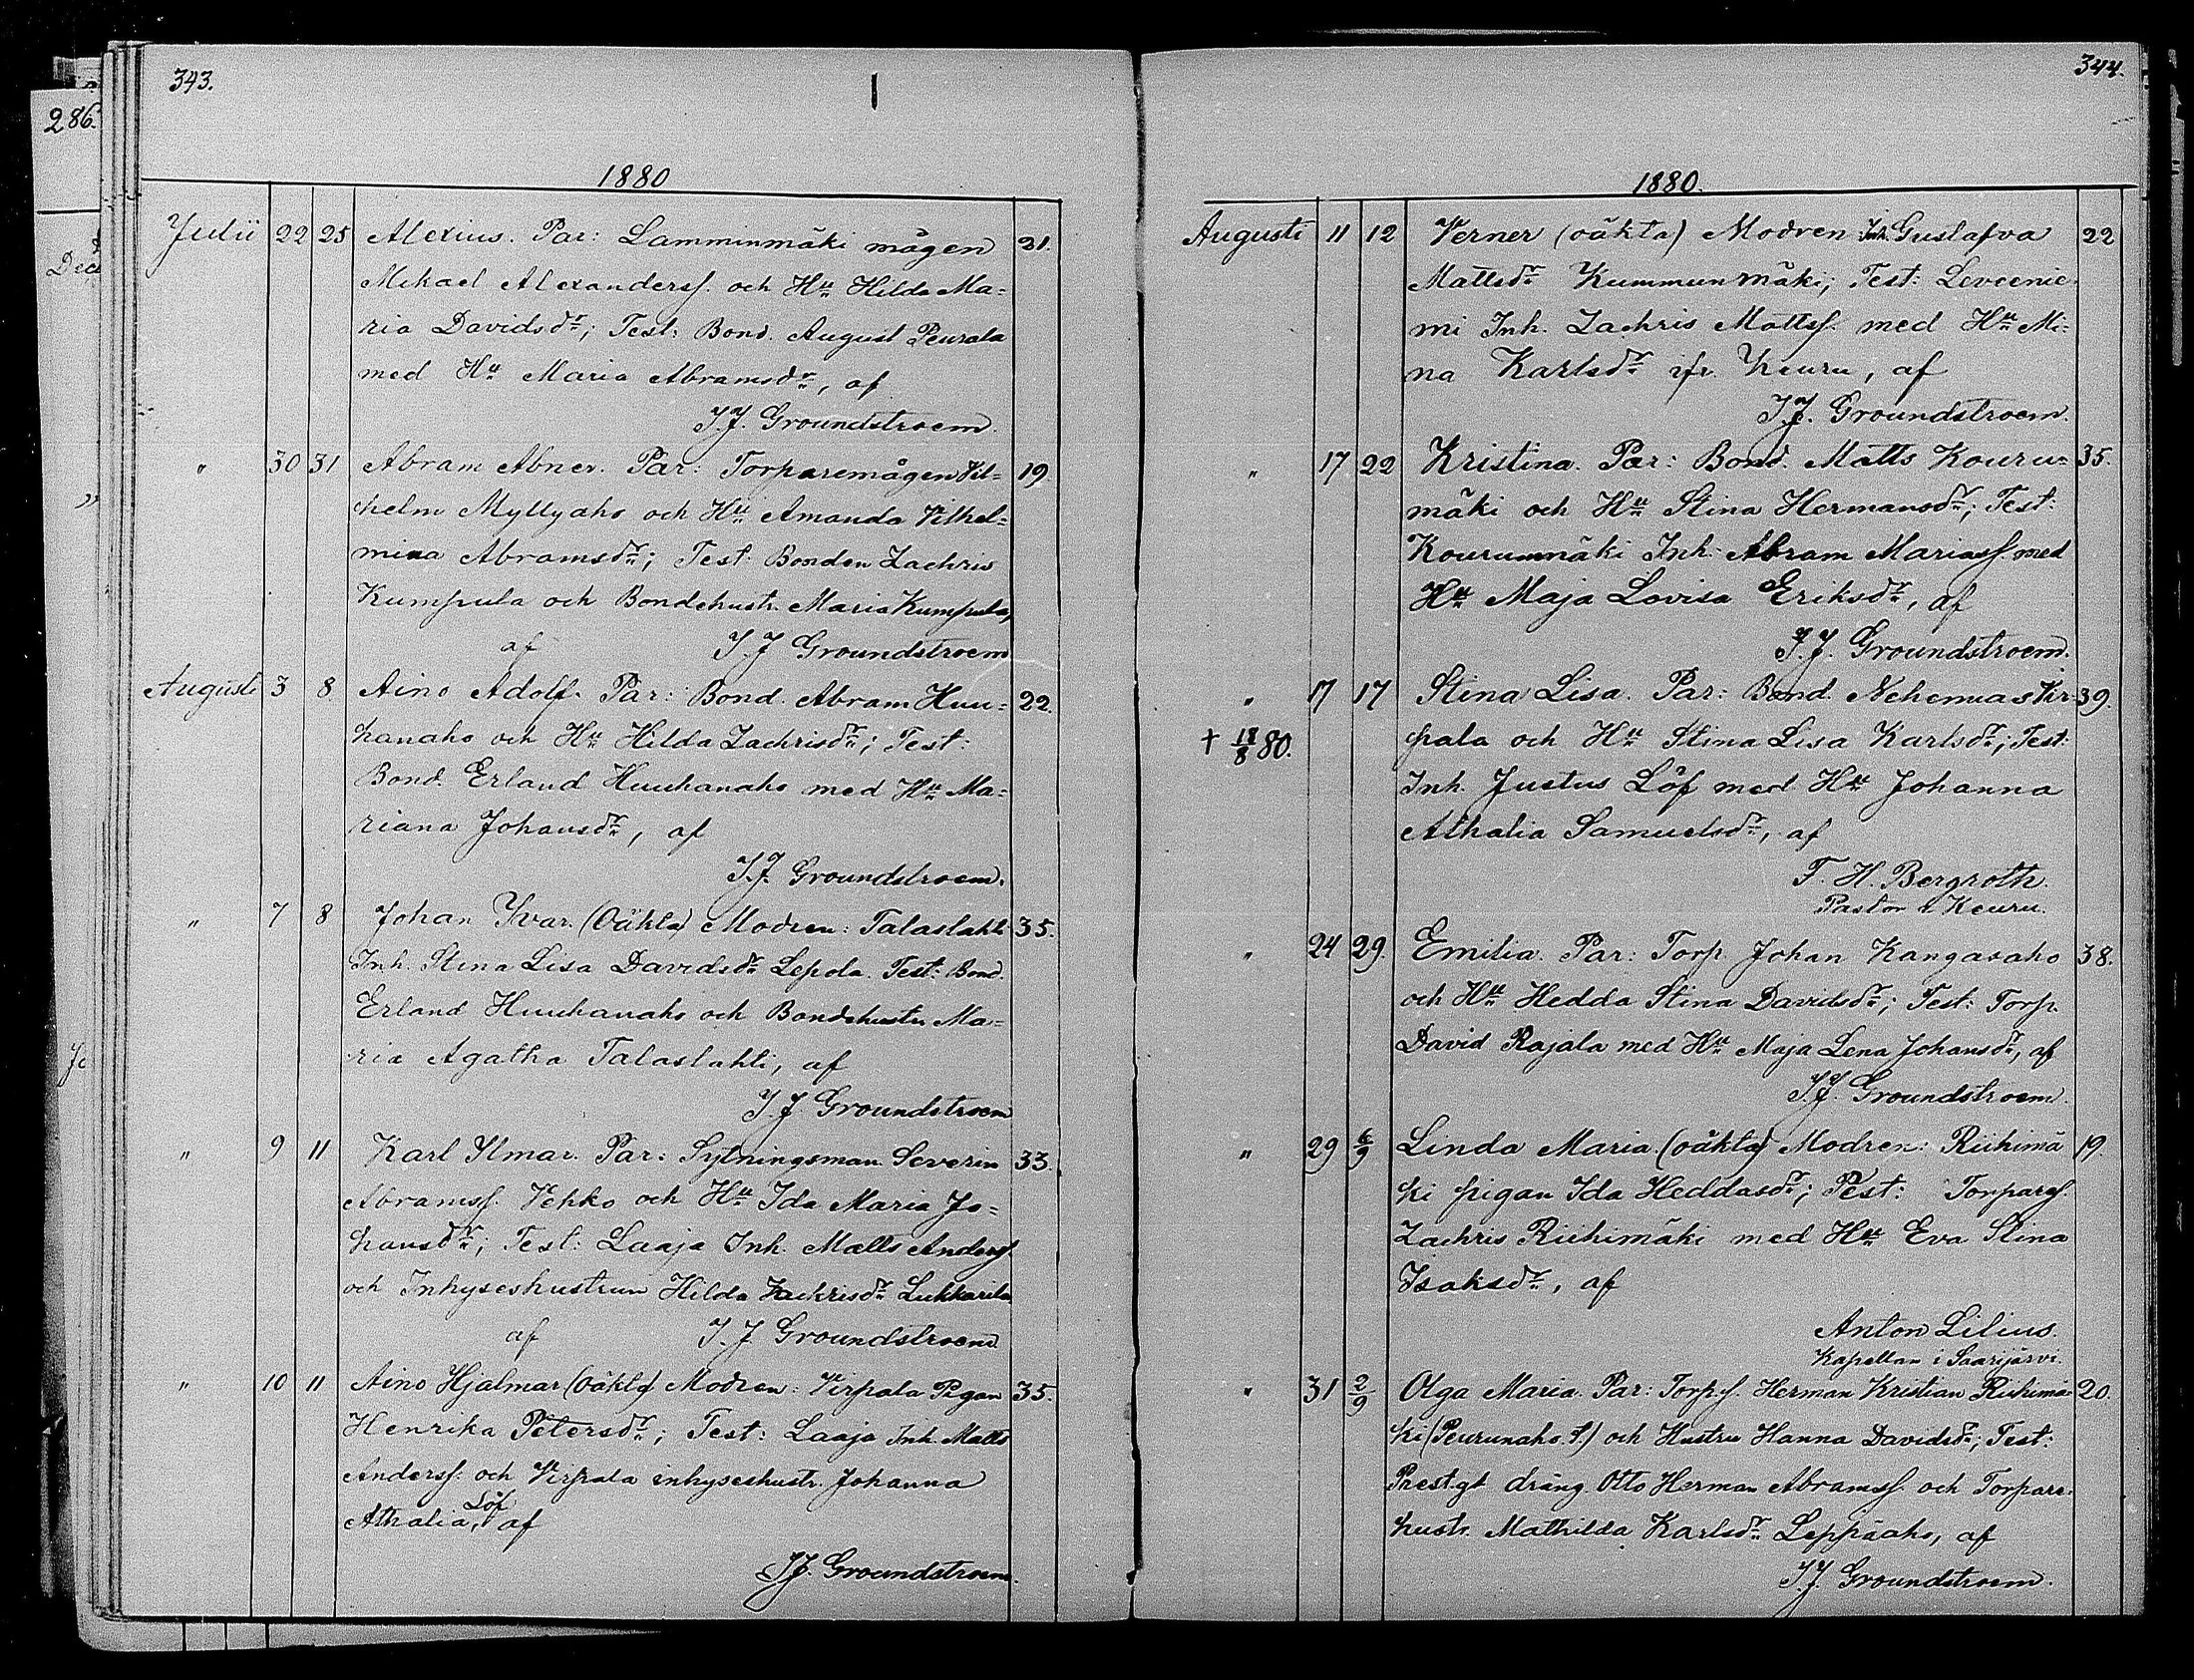 343.
286.
1880
Julii 22 25 Alexius. Par: Lamminmäki mågen 31.
Mikael Alexanderss. och Hu Hilda Ma=
ria Davidsdr; Test: Bond. August Peurala
med Hu Maria Abramsdr, af
J.J. Groundstroem.
" 30 31 Abram Abner. Par: Torparemågen Vil= 19.
helm Myllyaho och Hu Amanda Vilhel=
mina Abramsdr; Test: Bonden Zachris
Kumpula och Bondehustr. Maria Kumpula,
af J.J Groundstroem
Augusti 3 8 Aino Adolf. Par: Bond. Abram Huu= 22.
hanaho och Hu Hilda Zachrisdr; Test:
Bond. Erland Huuhanaho med Hu Ma=
riana Johansdr, af
J.J. Groundstroem.
" 7 8 Johan Yvar. (Oäkta) Modren: Talaslahti 35.
Inh. Stina Lisa Davidsdr Lepola. Test: Bond.
Erland Huuhanaho och Bondehustru Ma=
ria Agatha Talaslahti, af
J.J. Groundstroem
" 9 11 Karl Ylmar. Par: Sytningsman Severin 33.
Abramss. Vehko och Hu Ida Maria Jo=
hansdr; Test: Laaja Inh. Matts Anderss.
och Inhyseshustrun Hilda Zachrisdr Lukkarila
af J.J Groundstroem
" 10 11 Aino Hjalmar (Oäkta) Modren: Virpala Pigan 35.
Henrika Petersdr; Test: Laaja Inh. Matts
Anderss. och Virpala inhyseshustr. Johanna
Athalia, Löf af
J.J. Groundstroem.
344.
1880.
Augusti 11 12 Verner (oäkta) Modren Inh. Gustafva 22
Mattsdr Kummunmäki; Test: Leveenie
mi Inh. Zachris Mattss. med Hu Mi=
na Karlsdr ifr. Keuru, af
J.J. Groundstroem.
" 17 22 Kristina. Par: Bond. Matts Kouru= 35.
mäki och Hu Stina Hermansdr; Test:
Kourumäki Inh. Abram Mariass. med
Hu Maja Lovisa Eriksdr, af
J.J. Groundstroem.
" 17 17 Stina Lisa. Par: Bond. Nehemias Vir= 39.
+ 18/8 80. pala och Hu Stina Lisa Karlsdr; Test:
Inh. Justus Löf med Hu Johanna
Athalia Samuelsdr, af
F. H. Bergroth.
Pastor i Keuru.
" 24 29. Emilia. Par: Torp. Johan Kangasaho 38.
och Hu Hedda Stina Davidsdr; Test: Torp.
David Rajala med Hu Maja Lena Johansdr, af
J.J. Groundstroem.
" 29 6/9 Linda Maria. (oäkta) Modren: Riihimä 19.
ki pigan Ida Heddasdr; Test: Torpares.
Zachris Riihimäki med Hu Eva Stina
Isaksdr, af
Anton Lilius.
Kapellan i Saarijärvi.
" 31 2/9 Olga Maria. Par: Torp.s. Herman Kristian Riihimä= 20.
ki (Peurunaho t.) och Hustru Hanna Davidsdr; Test:
Prestgt dräng Otto Herman Abramss. och Torpare.
hustr. Mathilda Karlsdr Leppäaho, af
J.J. Groundstroem.